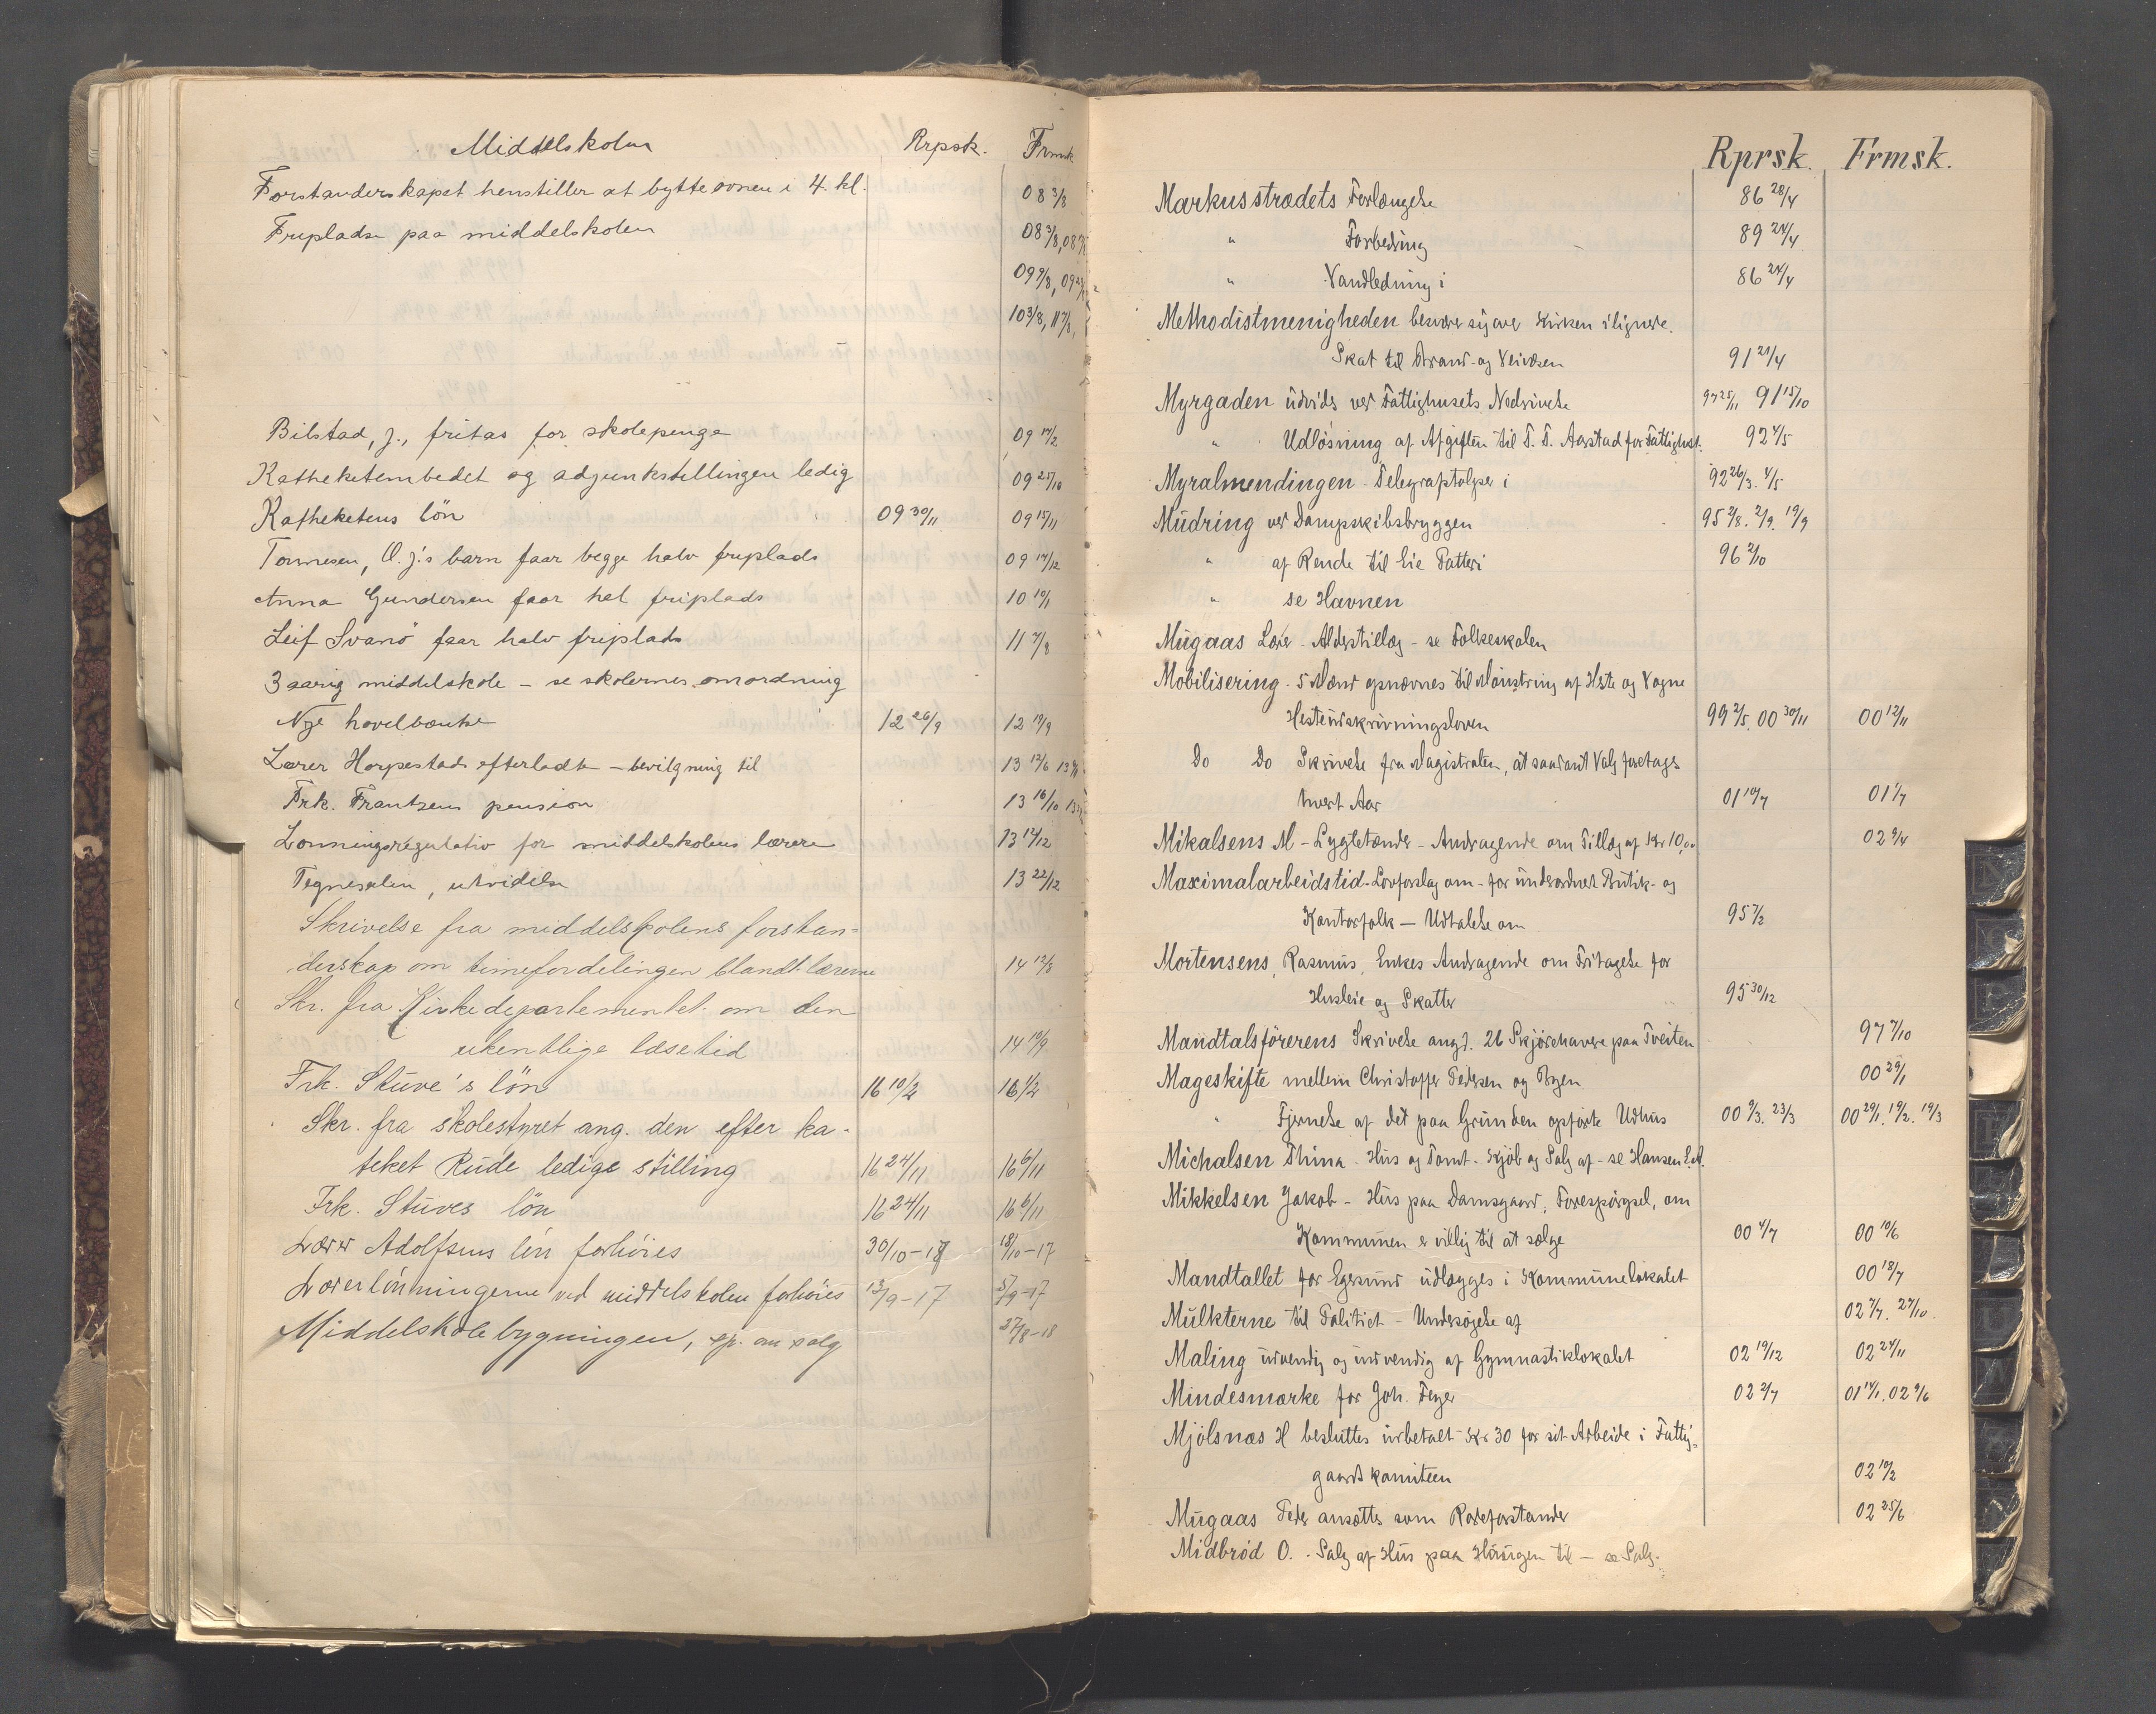 Middelskolen Rrpsk. Frmsk
Forstanderskapet henstiller at bytte ovnen i 4. kl. 08 3/8
Fripladse paa middelskolen 08 3/8, 08
09 9/8, 09
10 3/8, 11 7/8,
Bilstad, J., fritas for skolepenge 09 17/2
Katheketembedet og adjunkstillingen ledig 09 25/10
Katheketens lön 09 30/11 09 15/11
Tönnesen, O. J.'s barn faar begge halv friplads 09 17/12
Anna Gundersen faar hel friplads 10 19/1
Leif Svanö faar halv friplads 11 7/8
3 aarig middelskole – se skolernes omordning
Nye hövelbænke 12 26/9 12 19/9
Lærer Horpestads efterladte – bevilgning til 13 13/6
Frk. Frantzens pension 13 16/10
Lönningsregulativ for middelskolens lærere 13 12/12
Tegnesalen, utvidelse 13 22/12
Skrivelse fra middelskolens forstan=
derskap om timefordelingen blandt lærerne 14 12/8
Skr. fra Kirkedepartementet om den
ukentlige læsetid 14 10/9
Frk. Stüve's lön 16 10/2 16 1/2
Skr. fra skolestyret ang. den efter ka-
teket Rude ledige stilling 16 24/11 16 6/11
Frk. Stüves lön 16 24/11 16 6/11
Lærer Adolfsens lön forhöies 30/10-17 18/10-17
Lærerlönningerne ved middelskolen forhöies 13/9-17 5/9-17
Middelskolebygningen, sp. om salg 27/8-18
Rprsk. Frmsk.
Markusstrædets Forlængelse 86 28/4
" Forbedring 89 24/4
" Vandledning i 86 24/4
Methodistmenigheden besværer sig over Kirken ilignede
Skat til Brand- og Veivæsen 91 21/4
Myrgaden üdvides ved Fattighusets Nedrivelse 97 25/11 91 15/10
" Udlösning af Afgiften til T. T. Aarstad for Fattighust. 92 4/5
Myralmendingen – Telegrafstolper i 92 26/3. 4/5
Müdring ved Dampskibsbryggen 95 2/8. 2/9. 19/9
" af Rende til Eie Fatteri 96 2/10
" se Havnen
Mügaas Lærer – Alderstillæg – se Folkeskolen
Mobilisering – 5 Mænd opnævnes til Mönstring af Heste og Vogne
Hesteüdskrivningsloven 99 2/5. 00 30/11 00 12/11
Do Do Skrivelse fra Magistraten, at saadant Valg foretages
hvert Aar 01 10/7 01 1/7
Mikalsens M – Lygtetænder – Andragende om Tillæg af Kr 10,00 02 9/4
Maximalarbeidstid – Lovforslag om – for ünderordnet Bütik- og
Kontorfolk — Udtalelse om 95 7/2
Mortensens, Rasmüs, Enkes Andragende om Fritagelse for
Husleie og Skatter 95 30/12
Mandtalsförerens Skrivelse angd. 26 Skjödehavere paa Tveiten 97 7/10
Mageskifte mellem Christoffer Pedersen og Byen 00 29/1
" Fjernelse af det paa Grunden opförte Udhus 00 9/3. 23/3 00 29/1. 19/2. 19/3
Michalsen Thina – Hüs og Tomt – Kjöb og Salg af – se Hansen L. A.
Mikkelsen Jakob – Hüs paa Damsgaard, Forespörgsel, om
Kommunen er villig til at sælge 00 4/7 00 10/6
Mandtallet for Egersund üdlægges i Kommünelokalet 00 18/7
Mülkterne til Politiet – Undersögelse af 02 7/7. 27/10
Maling üdvendig og indvendig af Gymnastiklokalet 02 19/12 02 24/11
Mindesmærke for Joh. Feyer 02 2/7 01 14/1. 02 9/6
Mjölsnæs H besluttes üdbetalt Kr 30 for sit Arbeide i Fattig=
gaardskomiteen 02 10/2
Mügaas Peder ansættes som Rodeforstander 02 25/6
Midbröd O. – Salg af Hüs paa Haügen til – se Salg.